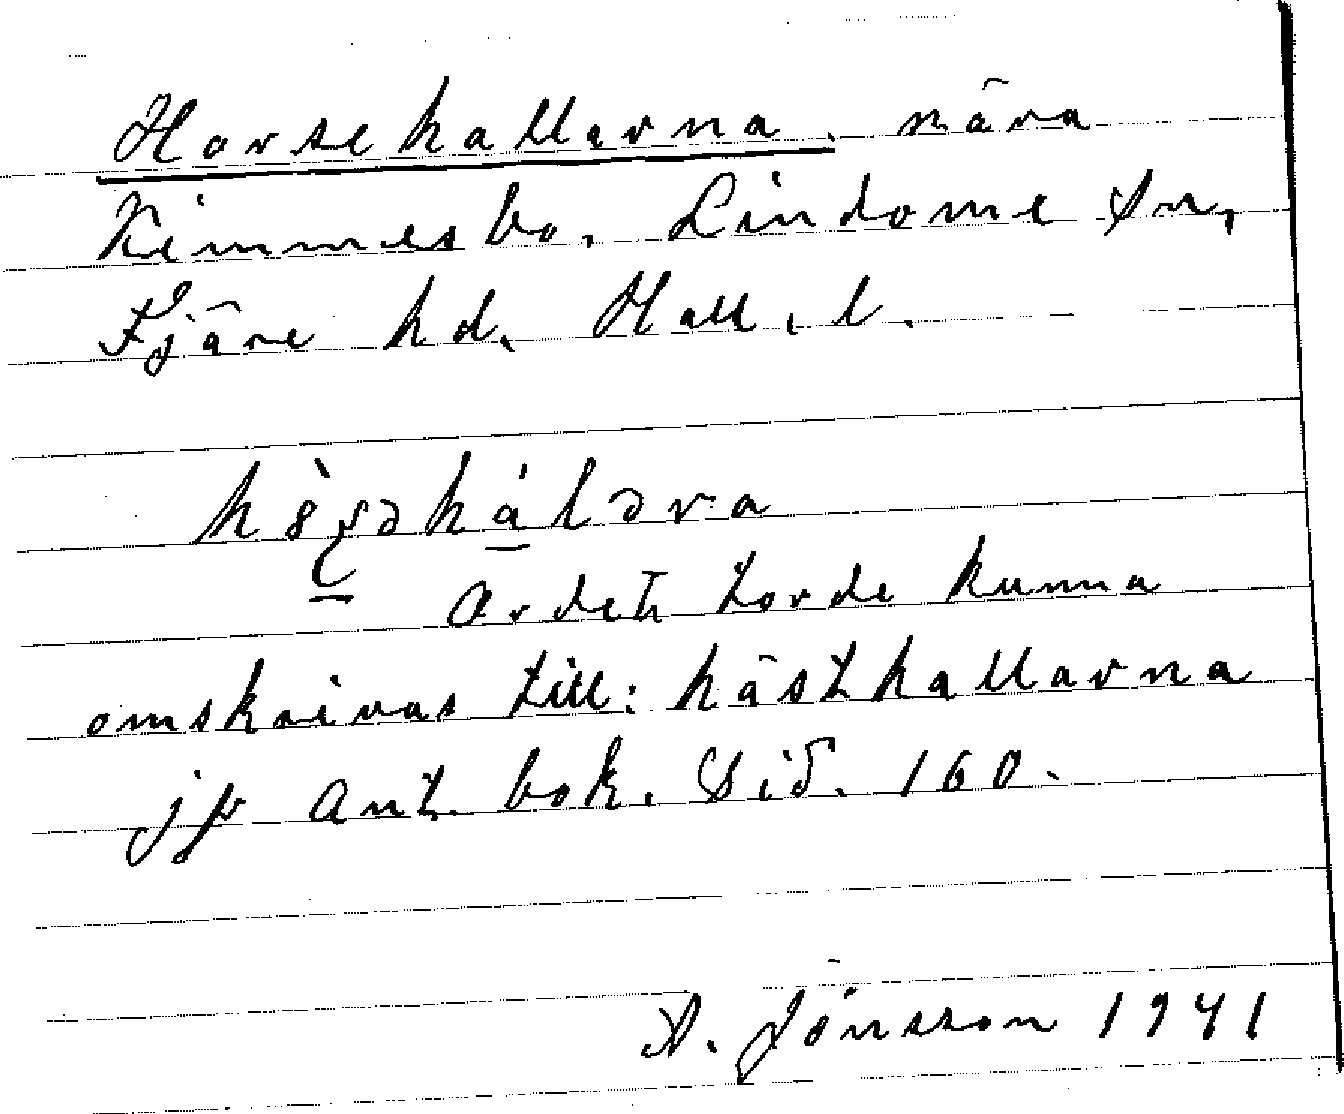 Horsekallarna. nära
Kimmesbo. Lindome Sn,
Fjäre hd. Hall. l.
Ordet torde kunna
omskrivas till: hästkallarna
jfr Ant. bok. Sid. 160.
A. Jönsson 1941